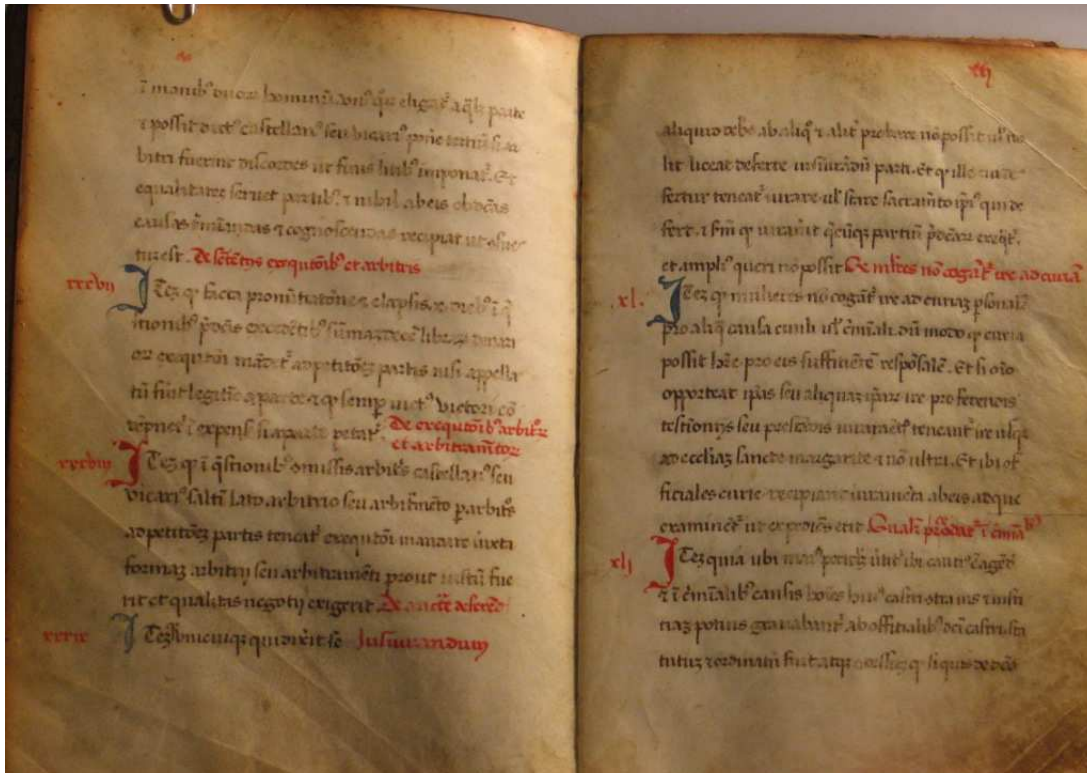 ĩ manib⁹ duoꝝ hominũ
⁊ possit dict⁹ castellan⁹ seu vicari⁹ pon̄e terciũ si ar
bitri fuerint discordes ut finis litib⁹ imponat᷑. Et
equalitatē servet partib⁹. ⁊ nihil ab eis ob dc̄as
causas t̃minandas ⁊ cognoscendas recipiat ut
tum est. De sētētijs exequtõib⁹ et arbitris
xxxvij
ITeꝫ ꝙ facta pronũtiatione ⁊ elapsis x dieb⁹ ĩ q̃
stionib⁹ p̃dc̄is excedētib⁹ sũmaꝫ decē libraꝝ denari
oꝝ exequtõi mãdet᷑ ad petitõeꝫ partis nisi appella
tũ fũit legitīe a parte ⁊ ꝙ semꝑ vict⁹ victori cõ
dēpnet᷑ ĩ expens̃ si a parte petat᷑ De exequtõib⁹ arbit̃oꝝ
et arbitramētoꝝ
xxxviij
ITeꝫ ꝙ ĩ q̃stionib⁹ omissis arbit̃s castellan⁹ seu
vicari⁹ saltī lato arbitrio seu arbitr̃mēto ꝑ arbitr̃os
ad petitõeꝫ partis teneat᷑ exequtõi mandare iuxta
formaꝫ arbitrij seu arbitramēti prout iustũ fue
rit et qualitas negotij exigerit De
xxxix
ITeꝫ unicuiqꝫ qui dix̃it se Jusiurandum
xlj
aliquid deb̃e ab aliq̃ ⁊ alit᷑ probare nõ possit ul̃ no
lit liceat deferre iusiurãdũ parti. Et ꝙ ille cui de
fertur teneat᷑ iurare ul̃ stare sacramēto ip̃i⁹ qui de
fert. ⁊ s̃m ꝙ iuraṽit
et ampli⁹ queri nõ possit De ml̃ieres nõ cogãt᷑ ire ad curiam
xl.
ITeꝫ ꝙ mulieres nõ cogãt᷑ ire ad curiaꝫ ꝑsonalit᷑
pro aliq̃ causa civili ul̃ c̃minali. dũ modo ꝙ curia
possit h̃re pro eis sufficiētē respõsalē. Et si oīo
opporteat ip̃as seu aliquaꝫ ip̃aꝝ ire pro ferendis
testimonijs seu prestandis iuramētis teneant᷑ ire usqꝫ
ad eccl̃iaꝫ sancte margarite ⁊ nõ ultra. Et ibi of
ficiales curie recipiant iuramēta ab eis ad que
examinet᷑ ut expediēs erit Qualit᷑ ꝓcedat᷑ ĩ c̃minalib⁹
xlj
ITeꝫ quia ubi mai⁹ ibi cauti⁹ ē agēdũ
⁊ ĩ c̃minalib⁹ causis hoīes hui⁹ castri ⁊ iusti
tiaꝫ poti⁹ gravabant᷑ ab offitialib⁹ dc̃i castri sta
tutuꝫ ⁊ ordinatũ fuit ꝙ si quis de dc̃is